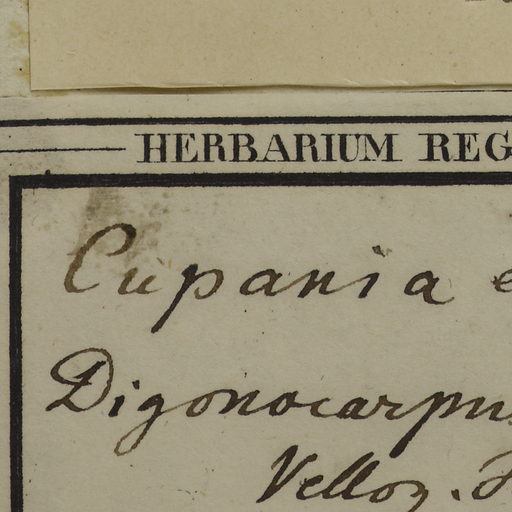 HERBARIUM REG
Cupania e
Digonocarpus
Velloz. F